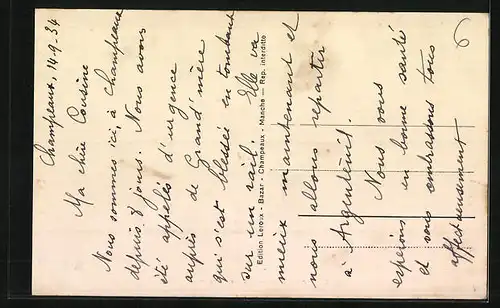 Champeaux, 14-9-34
Ma chère Cousine
Nous sommes ici, à Champeaux
depuis 8 jours. Nous avons
été appelés d'urgence
auprès de Grand'mère
qui s'est blessée en tombant
sur un rail. Elle va
Edition Leroux - Bazar - Champeaux - Manche — Rep. interdite
mieux maintenant et
nous allons repartir
à Argenteuil.
Nous vous
espérons en bonne santé
et vous embrassons tous
affectueusement
6